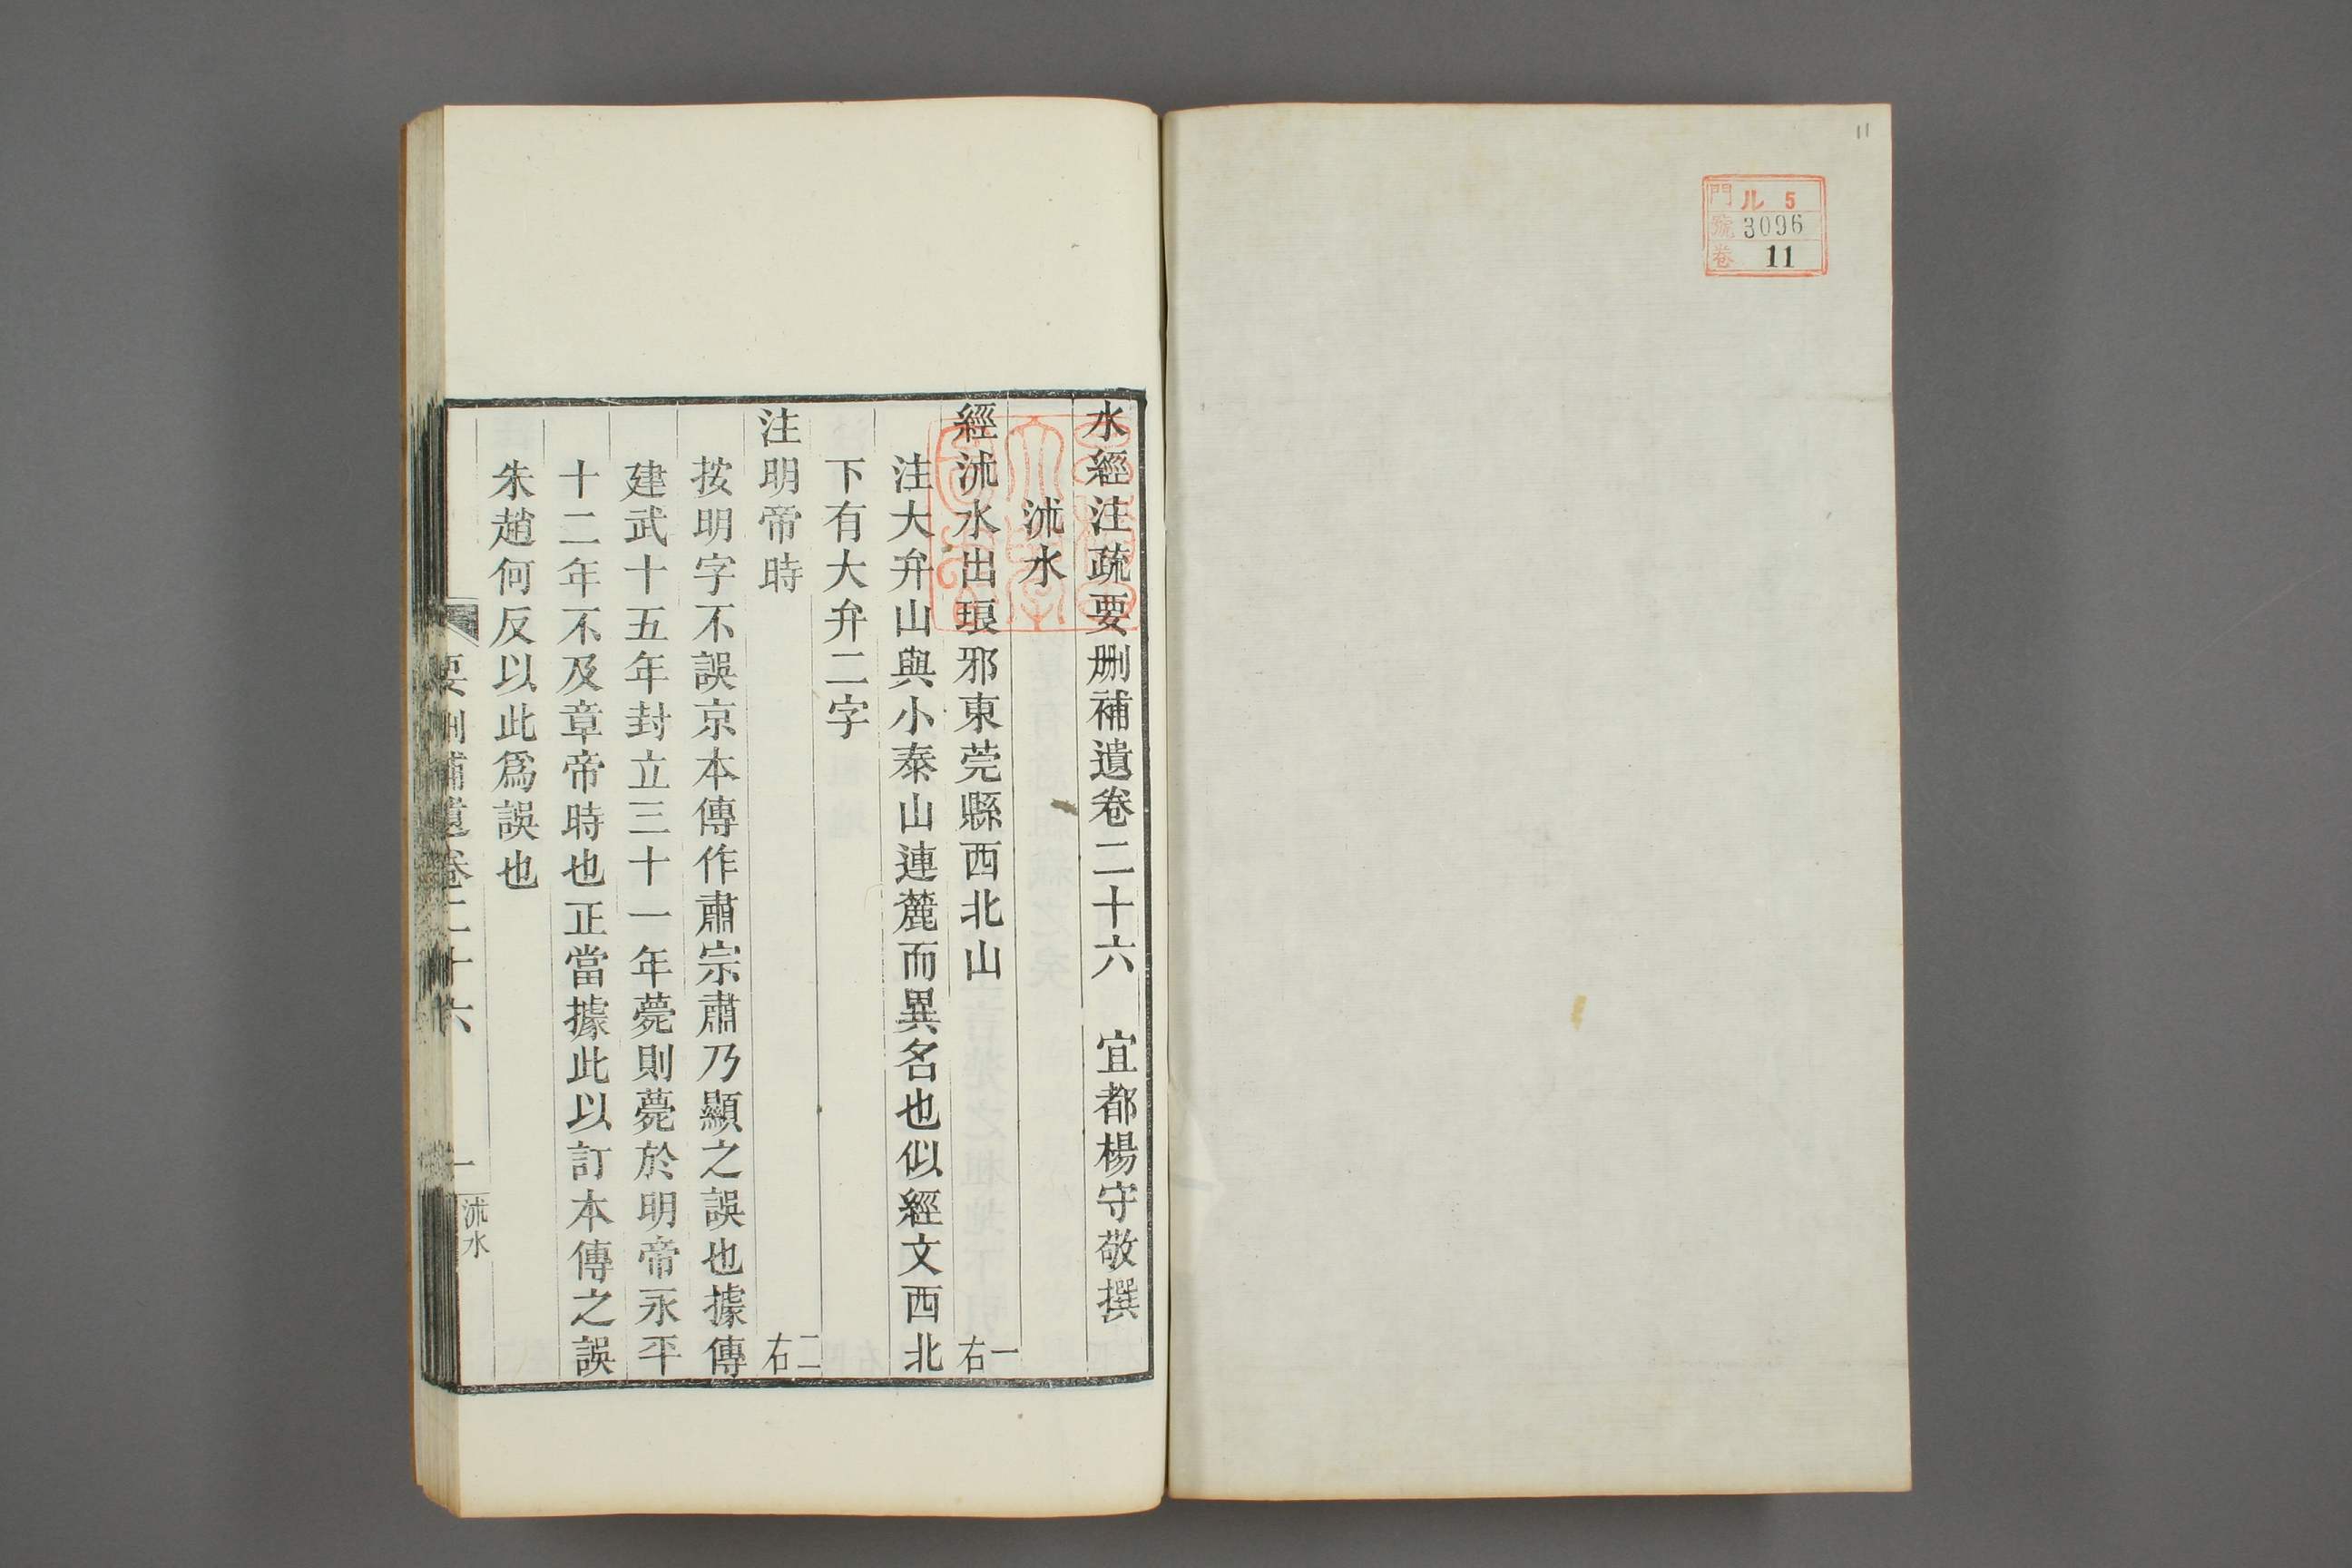 11
門 ル 5
號 3096
卷 11
水經注疏要刪補遺卷二十六 宜都楊守敬撰
沭水
經沭水出琅邪東莞縣西北山 一右
注大弁山與小泰山連麓而異名也似經文西北
下有大弁二字
注明帝時 二右
按明字不誤京本傳作肅宗肅乃顯之誤也據傳
建武十五年封立三十一年薨則薨於明帝永平
十二年不及章帝時也正當據此以訂本傳之誤
朱趙何反以此爲誤也
要刪補遺卷二十六 一 沭水